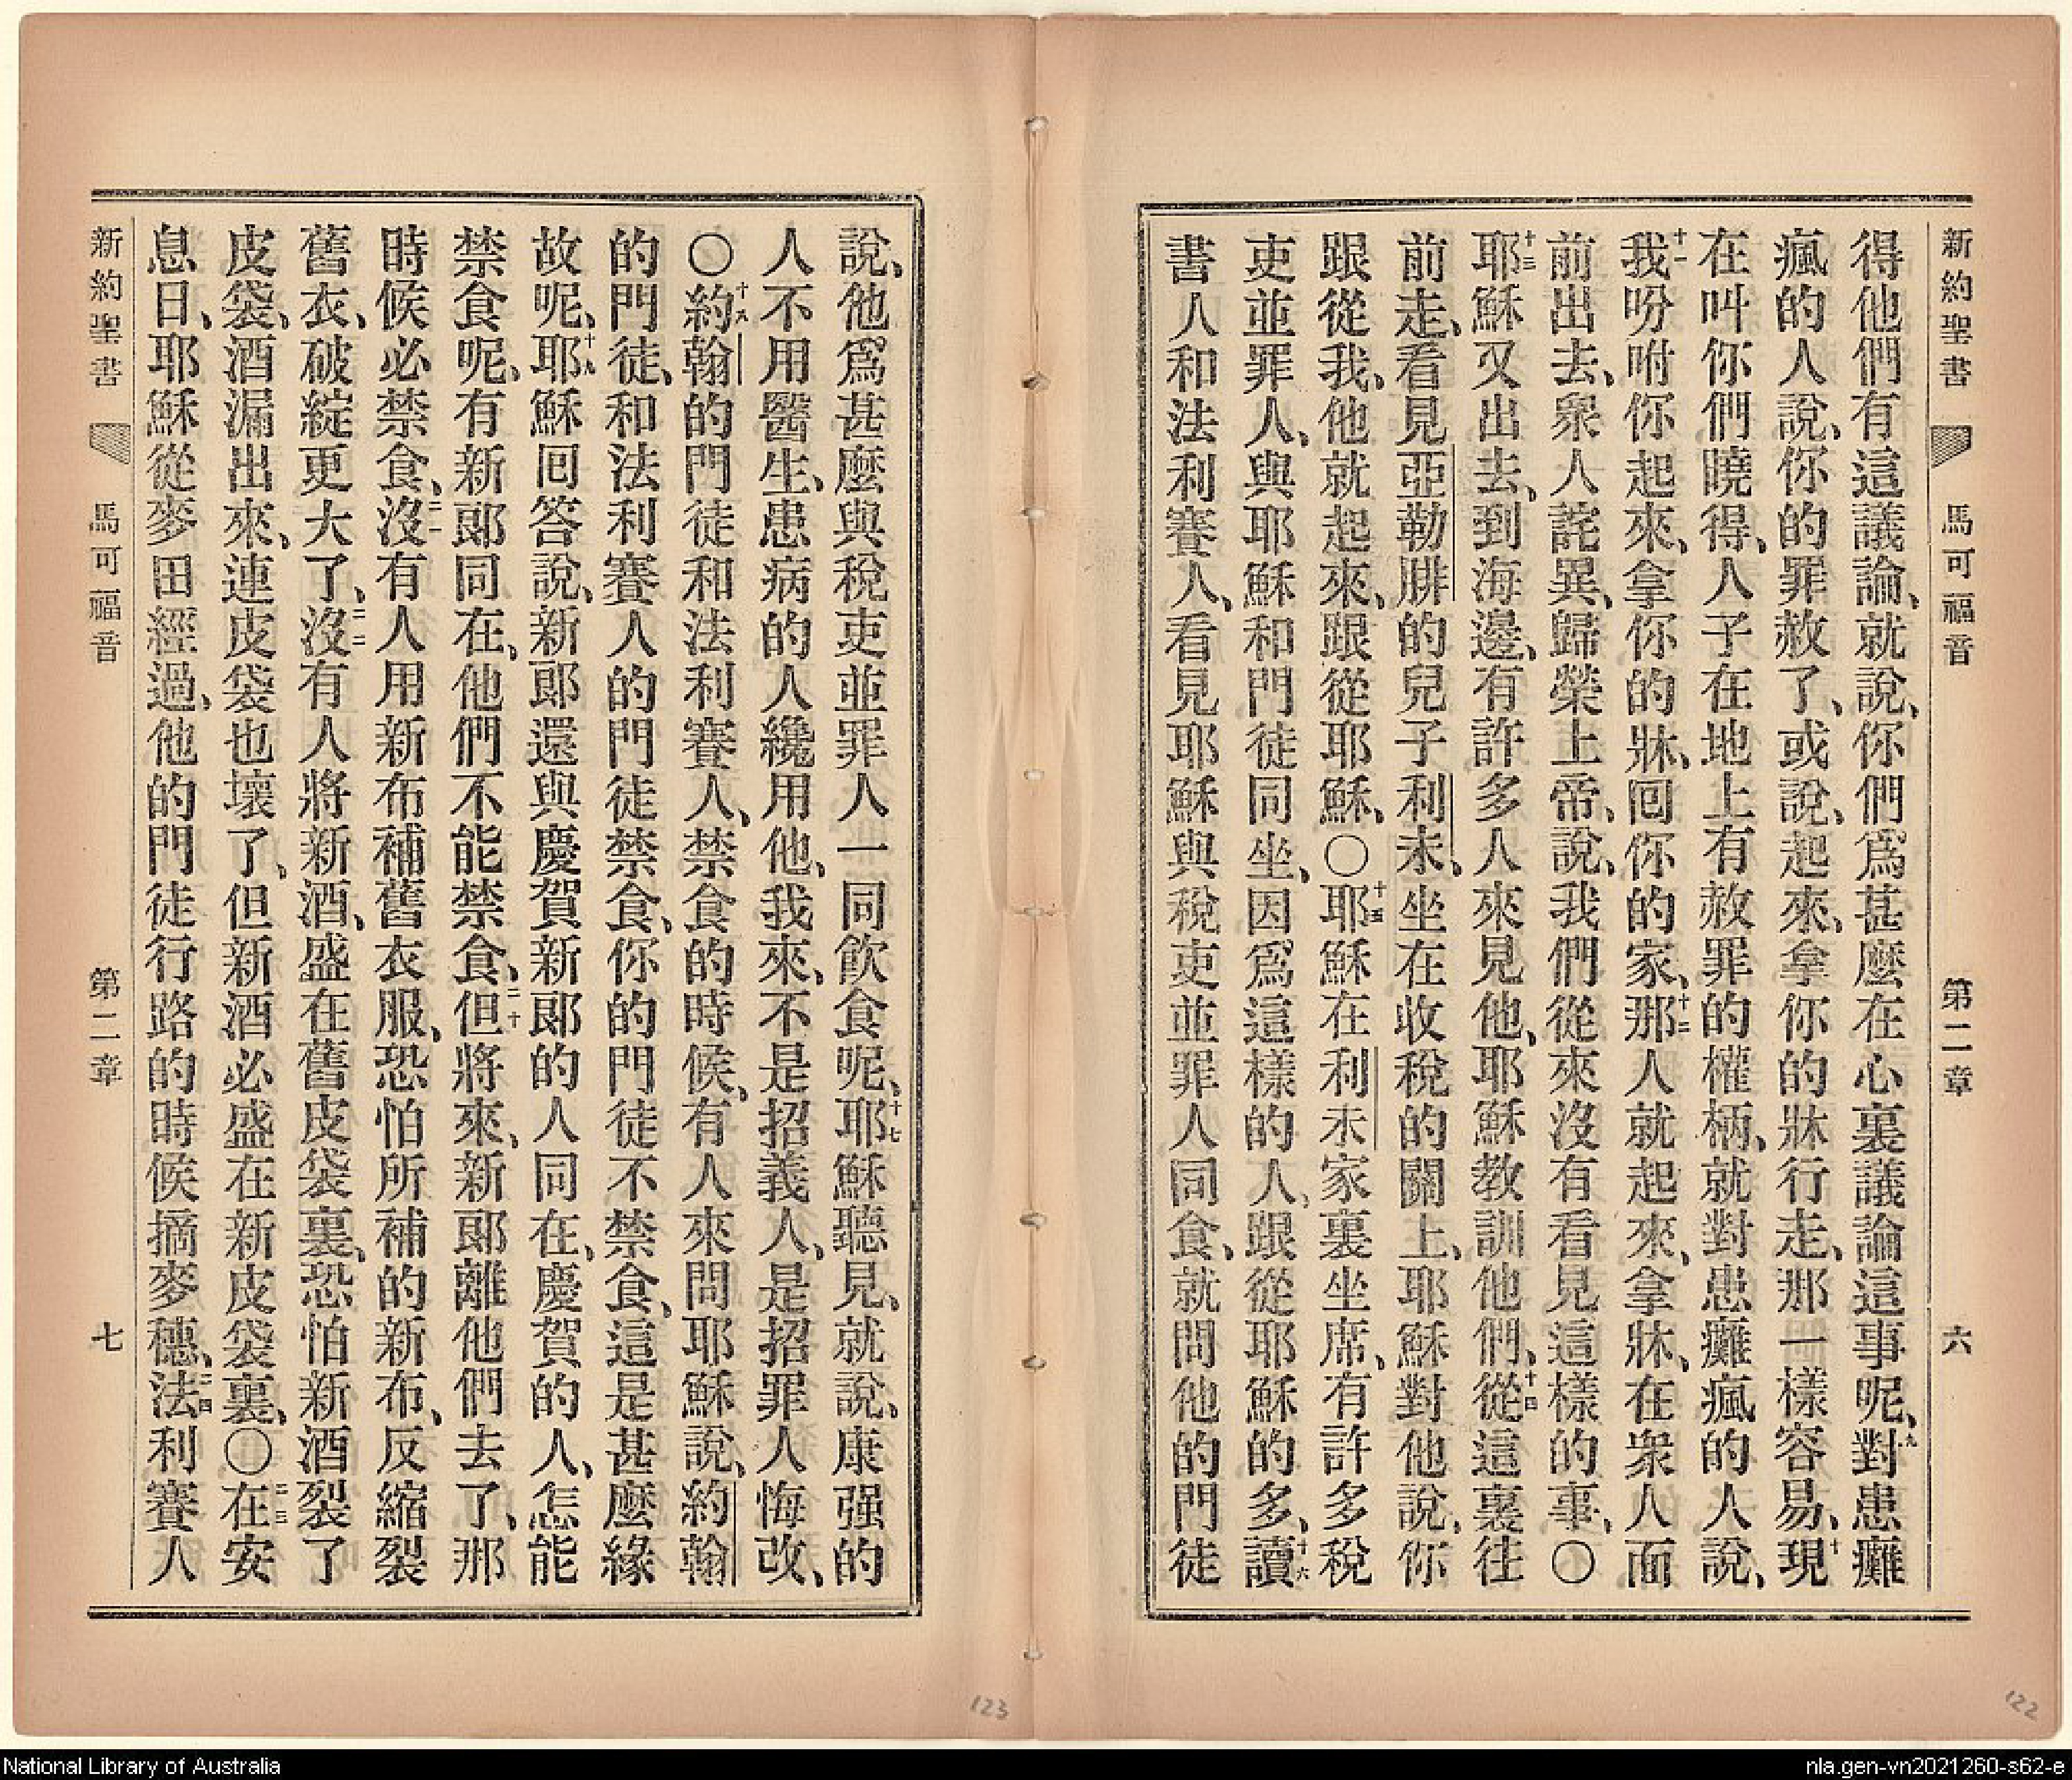 新約聖書 馬可福音 第二章 六
得他們有這議論、就說、你們爲甚麼在心裏議論這事呢、九對患癱
瘋的人說、你的罪赦了、或說、起來、拿你的牀行走、那一樣容易、十現
在叫你們曉得、人子在地上有赦罪的權柄、就對患癱瘋的人說、
十一我吩咐你起來、拿你的牀、囘你的家、十二那人就起來、拿牀、在衆人面
前出去、衆人詫異、歸榮上帝、說、我們從來沒有看見這樣的事、〇
十三耶穌又出去、到海邊、有許多人來見他、耶穌教訓他們、十四從這裏往
前走、看見亞勒腓的兒子利未、坐在收稅的關上、耶穌對他說、你
跟從我、他就起來、跟從耶穌、〇十五耶穌在利未家裏坐席、有許多稅
吏並罪人、與耶穌和門徒同坐、因爲這樣的人、跟從耶穌的多、十六讀
書人和法利賽人、看見耶穌與稅吏並罪人同食、就問他的門徒
說、他爲甚麼與稅吏並罪人一同飲食呢、十七耶穌聽見、就說、康强的
人不用醫生、患病的人纔用他、我來、不是招義人、是招罪人悔改、
〇十八約翰的門徒和法利賽人、禁食的時候、有人來問耶穌說、約翰
的門徒、和法利賽人的門徒禁食、你的門徒不禁食、這是甚麼緣
故呢、十九耶穌囘答說、新郎還與慶賀新郎的人同在、慶賀的人、怎能
禁食呢、有新郎同在、他們不能禁食、二十但將來、新郎離他們去了、那
時候必禁食、二一沒有人用新布補舊衣服、恐怕所補的新布、反縮裂
舊衣、破綻更大了、二二沒有人將新酒、盛在舊皮袋裏、恐怕新酒裂了
皮袋、酒漏出來、連皮袋也壞了、但新酒必盛在新皮袋裏、〇二三在安
息日、耶穌從麥田經過、他的門徒行路的時候摘麥穗、二四法利賽人
新約聖書 馬可福音 第二章 七
123
122
National Library of Australia
nla.gen-vn2021260-s62-e